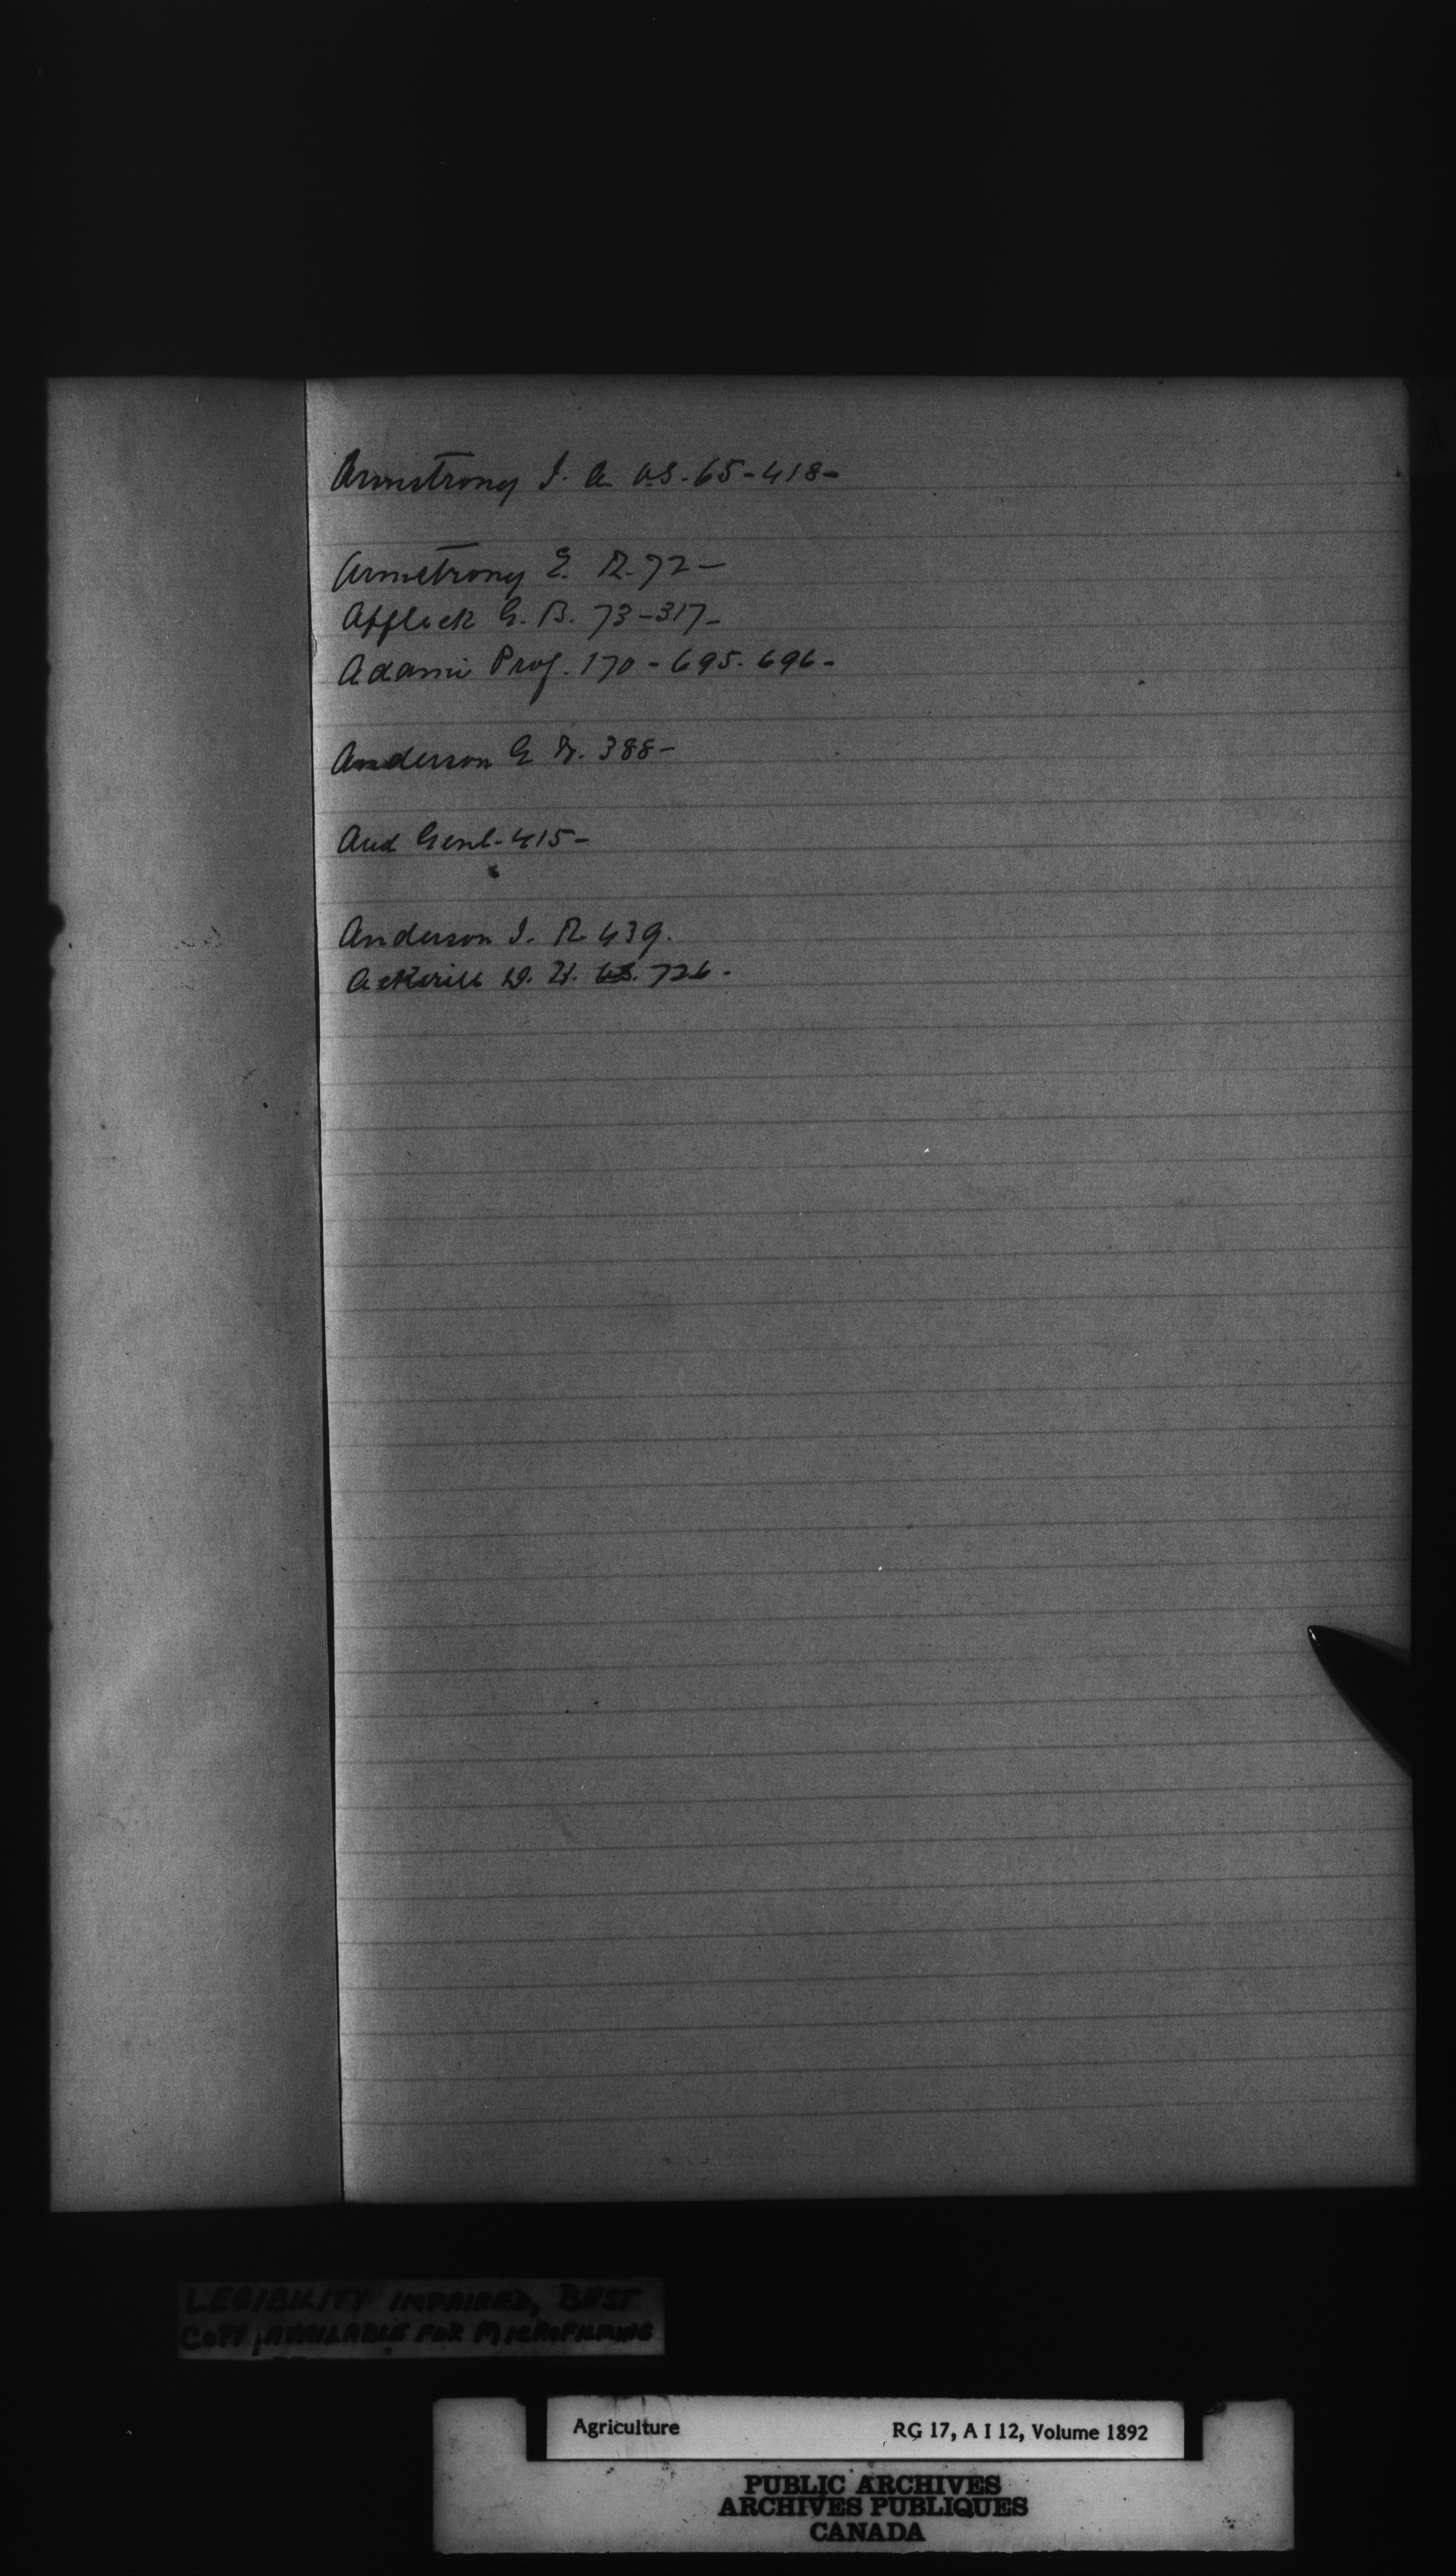 Armstrong J. A. V.S. 65-418-
Armstrong E. R. 72-
Affleck G. B. 73-317-
Adami Prof. 170-695. 696-
Anderson G. 388-
Aud Genl-415-
Anderson J. R 439.
Ackerill D. H. 726-
LEGIBILITY IMPAIRED, BEST
COPY AVAILABLE FOR MICROFILMING
Agriculture RG 17, A I 12, Volume 1892
PUBLIC ARCHIVES
ARCHIVES PUBLIQUES
CANADA